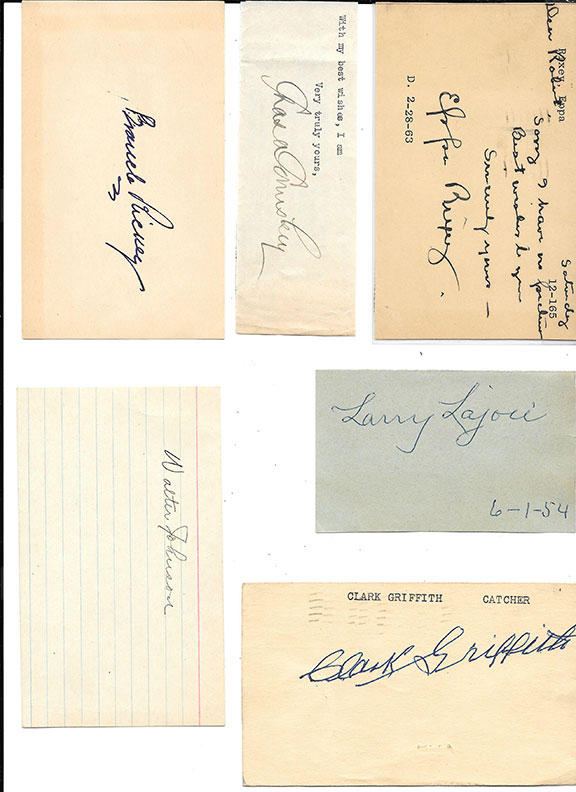 Branch Rickey
With my best wishes, I am
Very truly yours,
Chas a Comiskey
Rixey, Eppa
12-165
D. 2-28-63
Saturday
Dear Robert
Sorry I have no picture
Best wishes to you
Sincerely yours –
Eppa Rixey.
Walter Johnson
Larry Lajoie
6-1-54
CLARK GRIFFITH CATCHER
Clark Griffith